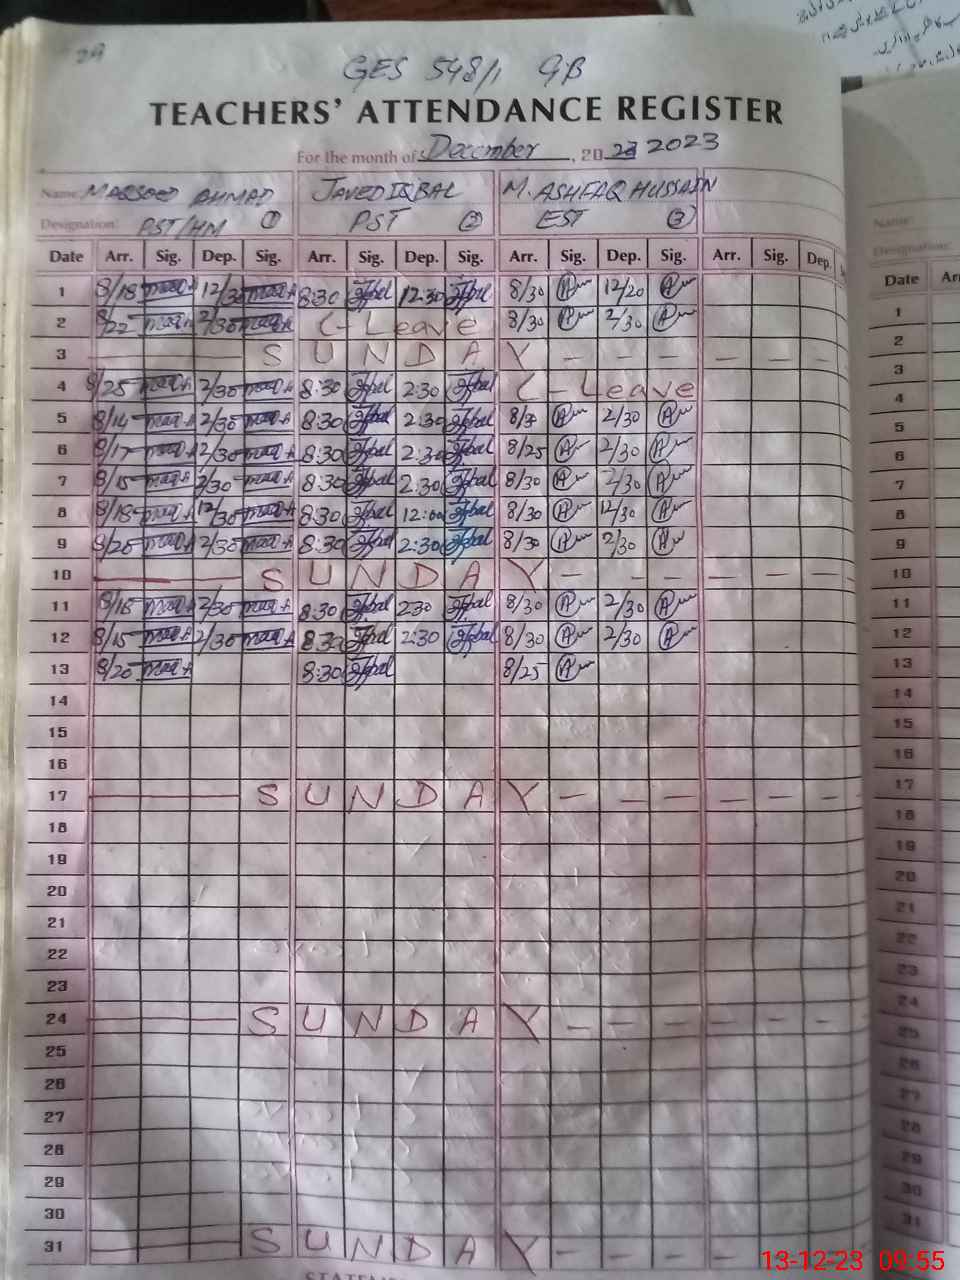 29
GES 548/1 GB
TEACHERS' ATTENDANCE REGISTER
For the month of December, 20 23 2023
Name: MAQSOOD AHMAD JAVED IQBAL M. ASHFAQ HUSSAIN
Designation: PST/HM ① PST ② EST ③
Date Arr. Sig. Dep. Sig. Arr. Sig. Dep. Sig. Arr. Sig. Dep. Sig. Arr. Sig. Dep.
1 8/18 12/30 8:30 Iqbal 12:30 Iqbal 8/30 12/20
2 8/22 2/30 C-Leave 8/30 2/30
3 SUNDAY - - - - - -
4 8/25 2/30 8:30 Iqbal 2:30 Iqbal C-Leave
5 8/14 2/30 8:30 Iqbal 2:30 Iqbal 8/30 2/30
6 8/17 2/30 8:30 Iqbal 2:30 Iqbal 8/25 2/30
7 8/15 2/30 8:30 Iqbal 2:30 Iqbal 8/30 2/30
8 8/18 12/30 8:30 Iqbal 12:00 Iqbal 8/30 12/30
9 8/20 2/30 8:30 Iqbal 2:30 Iqbal 8/30 2/30
10 SUNDAY - - - - - -
11 8/16 2/30 8:30 Iqbal 230 Iqbal 8/30 2/30
12 8/15 2/30 8:30 Iqbal 2:30 Iqbal 8/30 2/30
13 8/20 8:30 Iqbal 8/25
14
15
16
17 SUNDAY - - - - - -
18
19
20
21
22
23
24 SUNDAY - - - - - -
25
26
27
28
29
30
31 SUNDAY - - - - - -
Name:
Designation:
Date
1
2
3
4
5
6
7
8
9
10
11
12
13
14
15
16
17
18
19
20
21
22
23
24
25
26
27
28
29
30
31
13-12-23 09:55